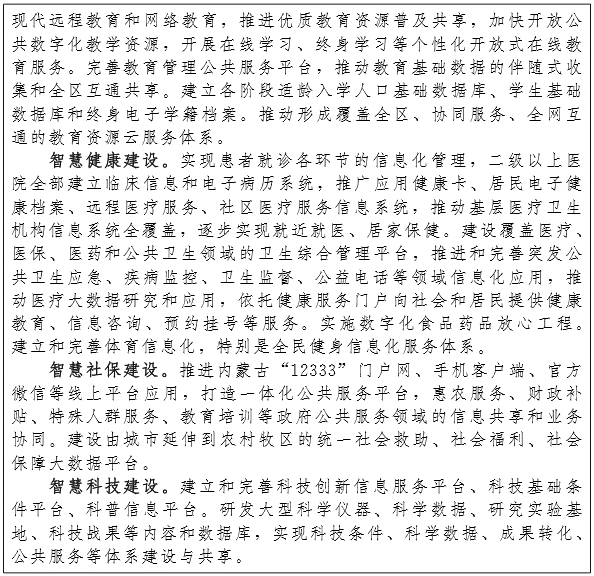 现代远程教育和网络教育，推进优质教育资源普及共享，加快开放公
共数字化教学资源，开展在线学习、终身学习等个性化开放式在线教
育服务。完善教育管理公共服务平台，推动教育基础数据的伴随式收
集和全区互通共享。建立各阶段适龄入学人口基础数据库、学生基础
数据库和终身电子学籍档案。推动形成覆盖全区、协同服务、全网互
通的教育资源云服务体系。
智慧健康建设。实现患者就诊各环节的信息化管理，二级以上医
院全部建立临床信息和电子病历系统，推广应用健康卡、居民电子健
康档案、远程医疗服务、社区医疗服务信息系统，推动基层医疗卫生
机构信息系统全覆盖，逐步实现就近就医、居家保健。建设覆盖医疗、
医保、医药和公共卫生领域的卫生综合管理平台，推进和完善突发公
共卫生应急、疾病监控、卫生监督、公益电话等领域信息化应用，推
动医疗大数据研究和应用，依托健康服务门户向社会和居民提供健康
教育、信息咨询、预约挂号等服务。实施数字化食品药品放心工程。
建立和完善体育信息化，特别是全民健身信息化服务体系。
智慧社保建设。推进内蒙古“12333”门户网、手机客户端、官方
微信等线上平台应用，打造一体化公共服务平台，惠农服务、财政补
贴、特殊人群服务、教育培训等政府公共服务领域的信息共享和业务
协同。建设由城市延伸到农村牧区的统一社会救助、社会福利、社会
保障大数据平台。
智慧科技建设。建立和完善科技创新信息服务平台、科技基础条
件平台、科普信息平台。研发大型科学仪器、科学数据、研究实验基
地、科技战果等内容和数据库，实现科技条件、科学数据、成果转化、
公共服务等体系建设与共享。